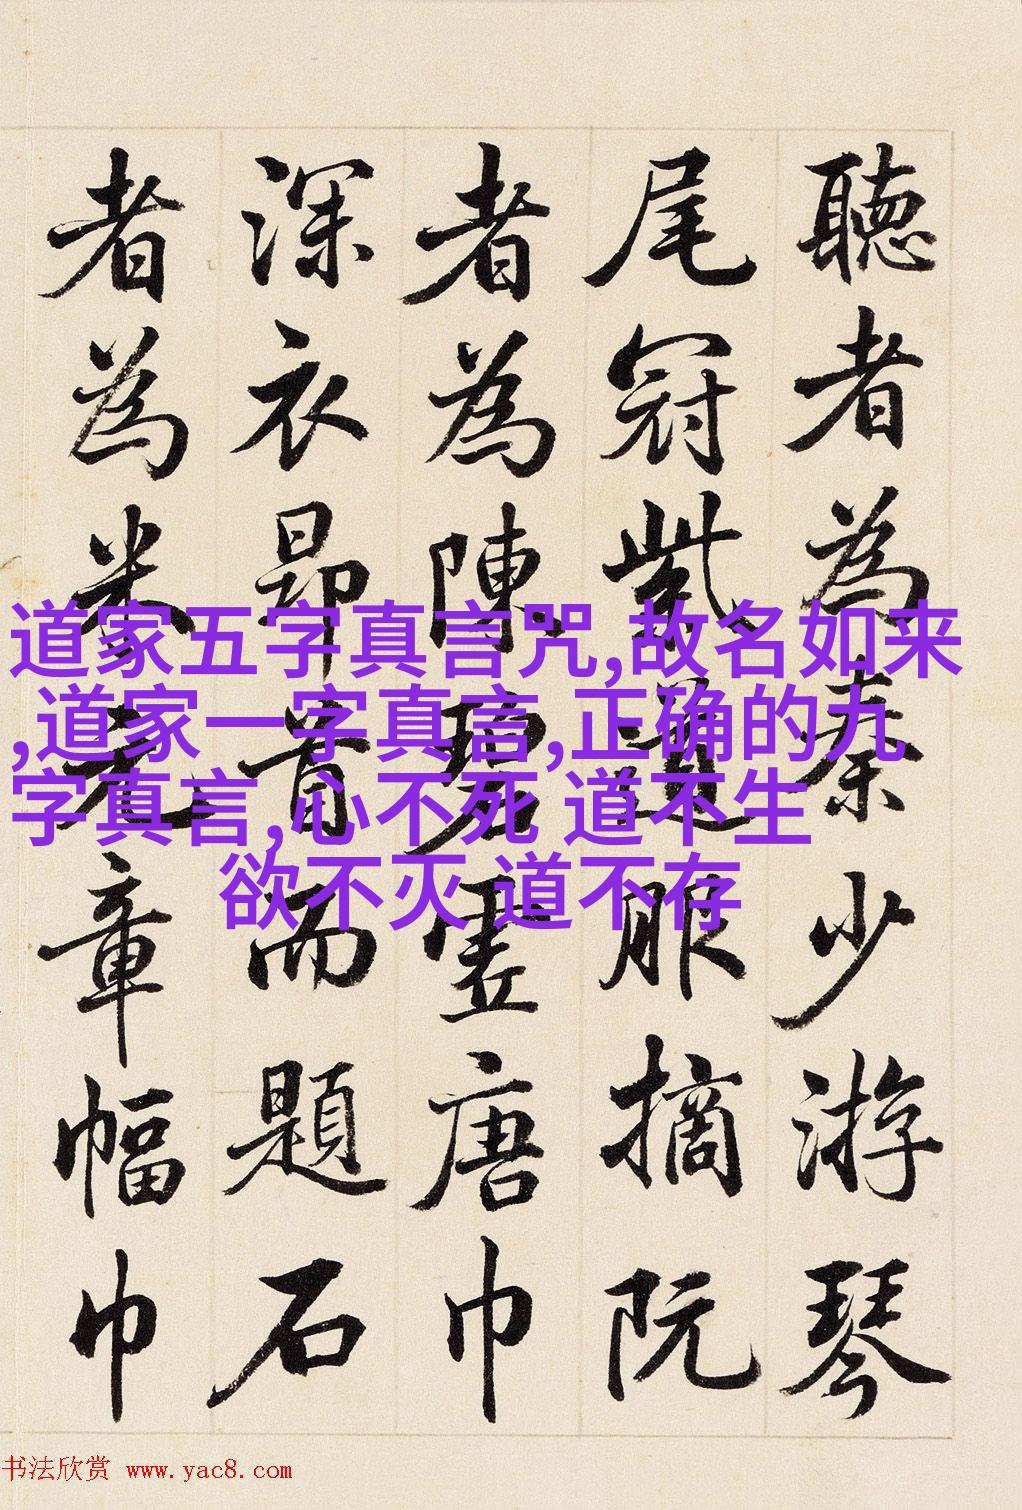 聽者為秦少游琴
尾冠紫道服摘阮
者為陳碧虛唐巾
深衣昂首而題石
者為米元章幅巾
道家五字真言咒,故名如来
,道家一字真言,正确的九
字真言,心不死 道不生
欲不灭 道不存
书法欣赏 www.yac8.com